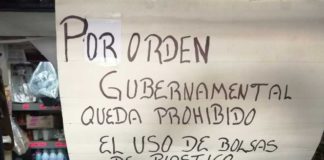 POR ORDEN
GUBERNAMENTAL
QUEDA PROHIBIDO
EL USO DE BOLSAS
DE PLASTICO